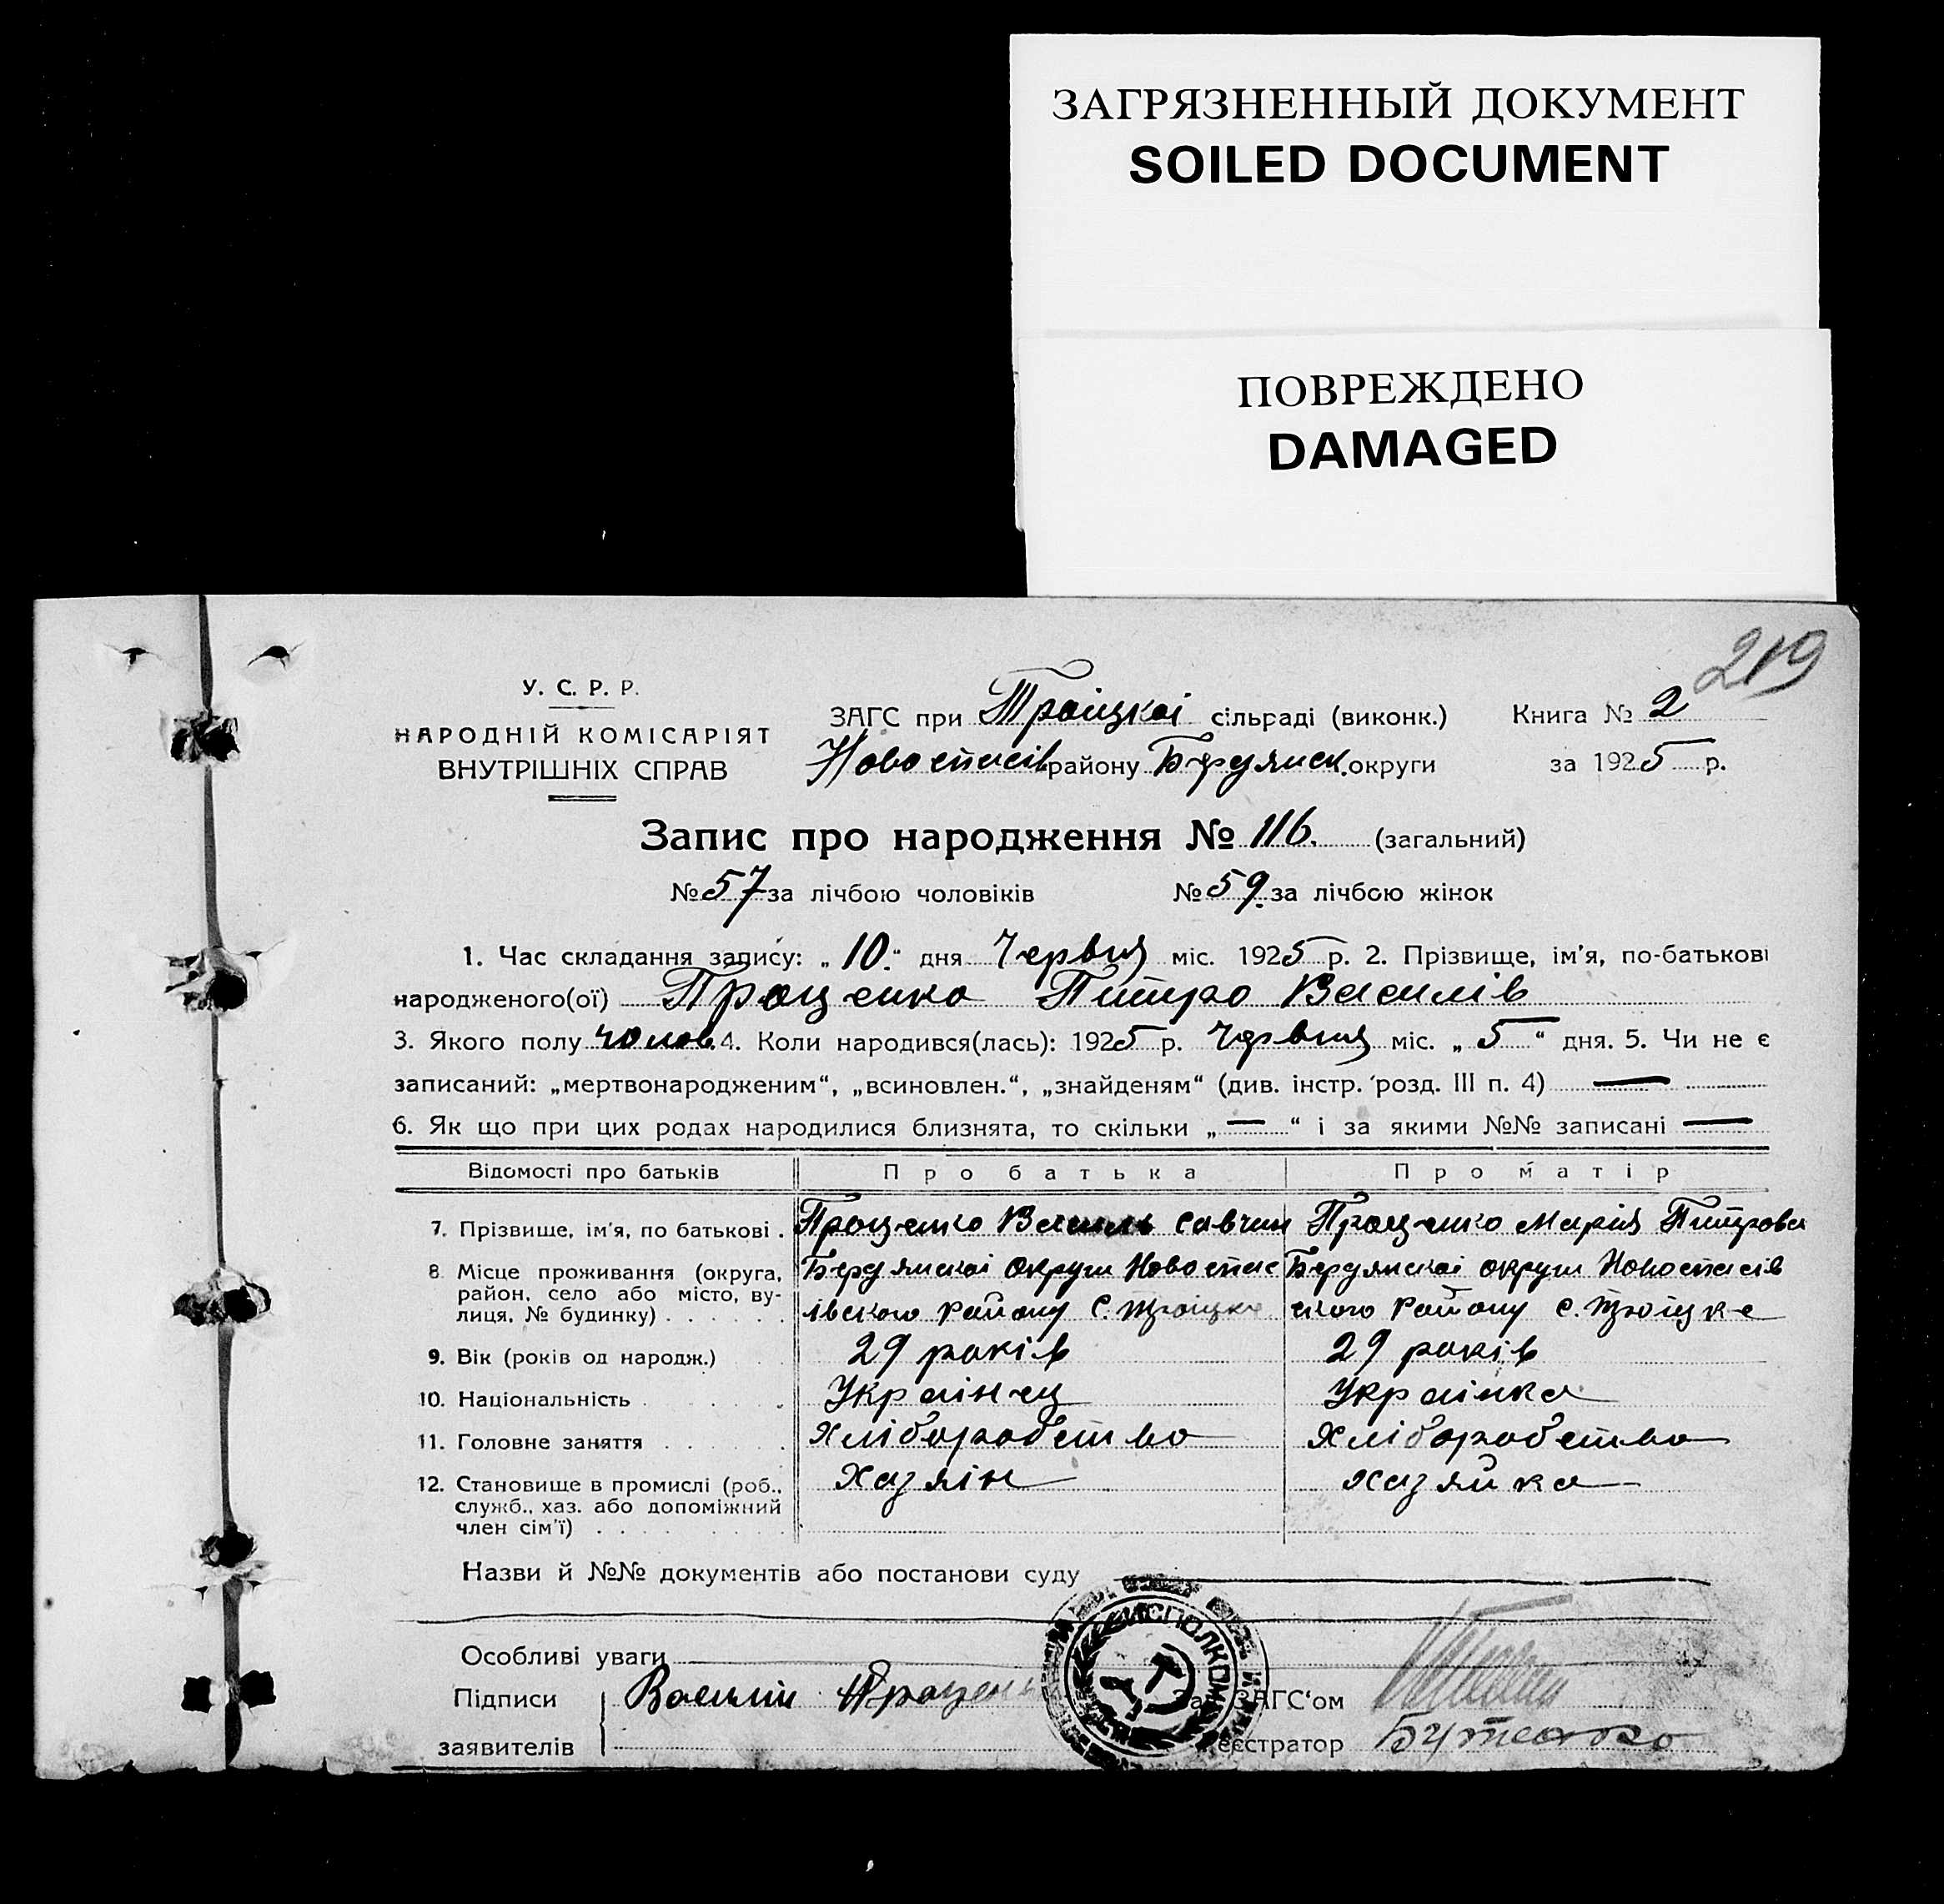 ЗАГРЯЗНЕННЫЙ ДОКУМЕНТ
SOILED DOCUMENT
ПОВРЕЖДЕНО
DAMAGED
219
У. С. Р. Р.
НАРОДНІЙ КОМІСАРІЯТ
ВНУТРІШНІХ СПРАВ
ЗАГС при Троіцкоі сільраді (виконк.) Книга № 2
Новоспасів району Бердянск. округи за 1925 р.
Запис про народження № 116. (загальний)
№ 57 за лічбою чоловіків № 59. за лічбою жінок
1. Час складання запису: „ 10. “ дня Червня міс. 1925 р. 2. Прізвище, ім'я, по-батькові
народженого(ої) Проценко Питро Василів
3. Якого полу чолов. 4. Коли народився(лась): 1925 р. Червня міс. „ 5 “ дня. 5. Чи не є
записаний: „мертвонародженим“, „всиновлен.“, „знайденям“ (див. інстр. розд. III п. 4) —
6. Як що при цих родах народилися близнята, то скільки „ — “ і за якими №№ записані —
Відомості про батьків Про батька Про матір
7. Прізвище, ім'я, по батькові . Проценко Василь Савчин Проценко Марія Питрова
8 Місце проживання (округа, Бердянскоі округи Новоспас Бердянскоі округи Новоспасів
район, село або місто, ву-
лиця, № будинку) . . . . . . івского району С. Троіцке ского району с. Троіцке
9. Вік (років од народж.) 29 років 29 років
10. Національність . . . . . Украінец Украінка
11. Головне заняття . . . . . Хліборобство Хліборобство
12. Становище в промислі (роб., Хазяін хазяйка
служб., хаз. або допоміжний
член сім'ї) . . . . . . .
Назви й №№ документів або постанови суду
ИСПОЛКОМ
Особливі уваги
Підписи Василій Процен ЗАГС‘ом
заявителів еєстратор